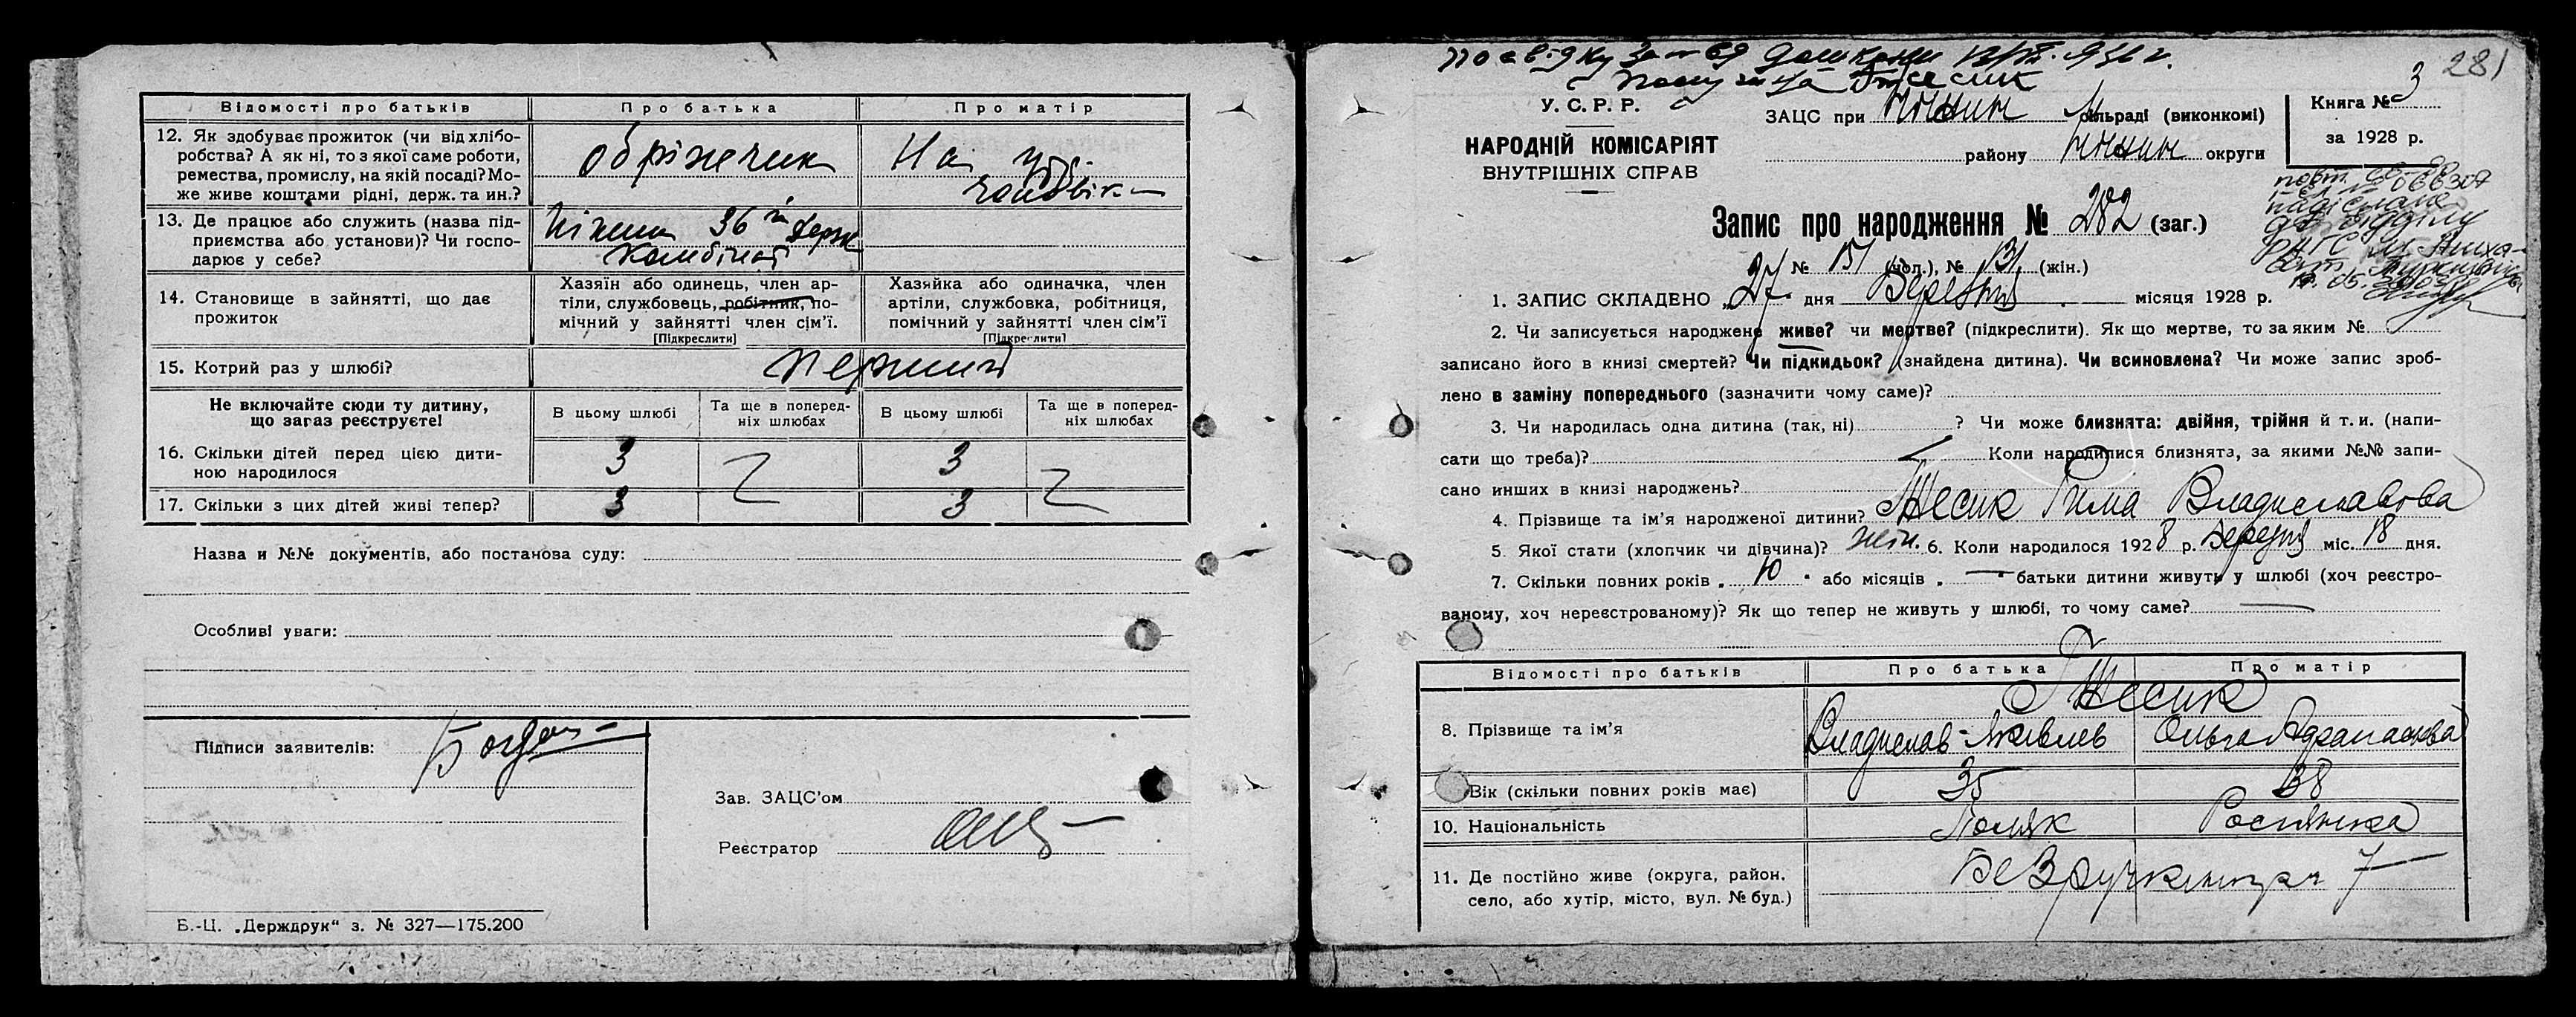 Відомості про батьків
Про батька
Про матір
12. Як здобуває прожиток (чи від хлібо-
робства? А як ні, то з якої саме роботи,
ремества, промислу, на якій посаді? Мо-
же живе коштами рідні, держ. та ин.?
На
13. Де працює або служить (назва під-
приємства або установи)? Чи госпо-
дарює у себе?
36
14. Становище в зайнятті, що дає
прожиток
Хазяїн або одинець, член ар-
тіли, службовець, робітник, по-
мічний у зайнятті член сім'ї.
[Підкреслити]
Хазяйка або одиначка, член
артіли, службовка, робітниця,
помічний у зайнятті член сім'ї
[Підкреслити]
15. Котрий раз у шлюбі?
перший
Не включайте сюди ту дитину,
що загаз реєструєте!
В цьому шлюбі
Та ще в поперед-
ніх шлюбах
В цьому шлюбі
Та ще в поперед-
ніх шлюбах
16. Скільки дітей перед цією дити-
ною народилося
3
3
17. Скільки з цих дітей живі тепер?
3
3
Назва и №№ документів, або постанова суду:
Особливі уваги:
Підписи заявителів:
Зав. ЗАЦС'ом
Реєстратор
Б.-Ц. „Держдрук“ з. № 327—175.200
281
У. С. Р. Р.
НАРОДНІЙ КОМІСАРІЯТ
ВНУТРІШНІХ СПРАВ
ЗАЦС при сільраді (виконкомі)
району округи
Книга № 3
за 1928 р.
Запис про народження № 282 (заг.)
№ 151 (чол.), № 131 (жін.)
1. ЗАПИС СКЛАДЕНО „27“ дня Березня місяця 1928 р.
2. Чи записується народжене живе? чи мертве? (підкреслити). Як що мертве, то за яким №
записано його в книзі смертей? Чи підкидьок? (знайдена дитина). Чи всиновлена? Чи може запис зроб-
лено в заміну попереднього (зазначити чому саме)?
3. Чи народилась одна дитина (так, ні) ? Чи може близнята: двійня, трійня й т. и. (напи-
сати що треба)? Коли народилися близнята, за якими №№ запи-
сано инших в книзі народжень?
4. Прізвище та ім'я народженої дитини? Рима Владиславовна
5. Якої стати (хлопчик чи дівчина)? жін. 6. Коли народилося 1928 р. Березня міс. 18 дня.
7. Скільки повних років „10“ або місяців „—“ батьки дитини живуть у шлюбі (хоч реєстро-
ваному, хоч нереєстрованому)? Як що тепер не живуть у шлюбі, то чому саме? —
Відомості про батьків
Про батька
Про матір
8. Прізвище та ім'я
Владислав
Ольга
Вік (скільки повних років має)
35
38
10. Національність
Поляк
Росіянка
11. Де постійно живе (округа, район,
село, або хутір, місто, вул. № буд.)
7